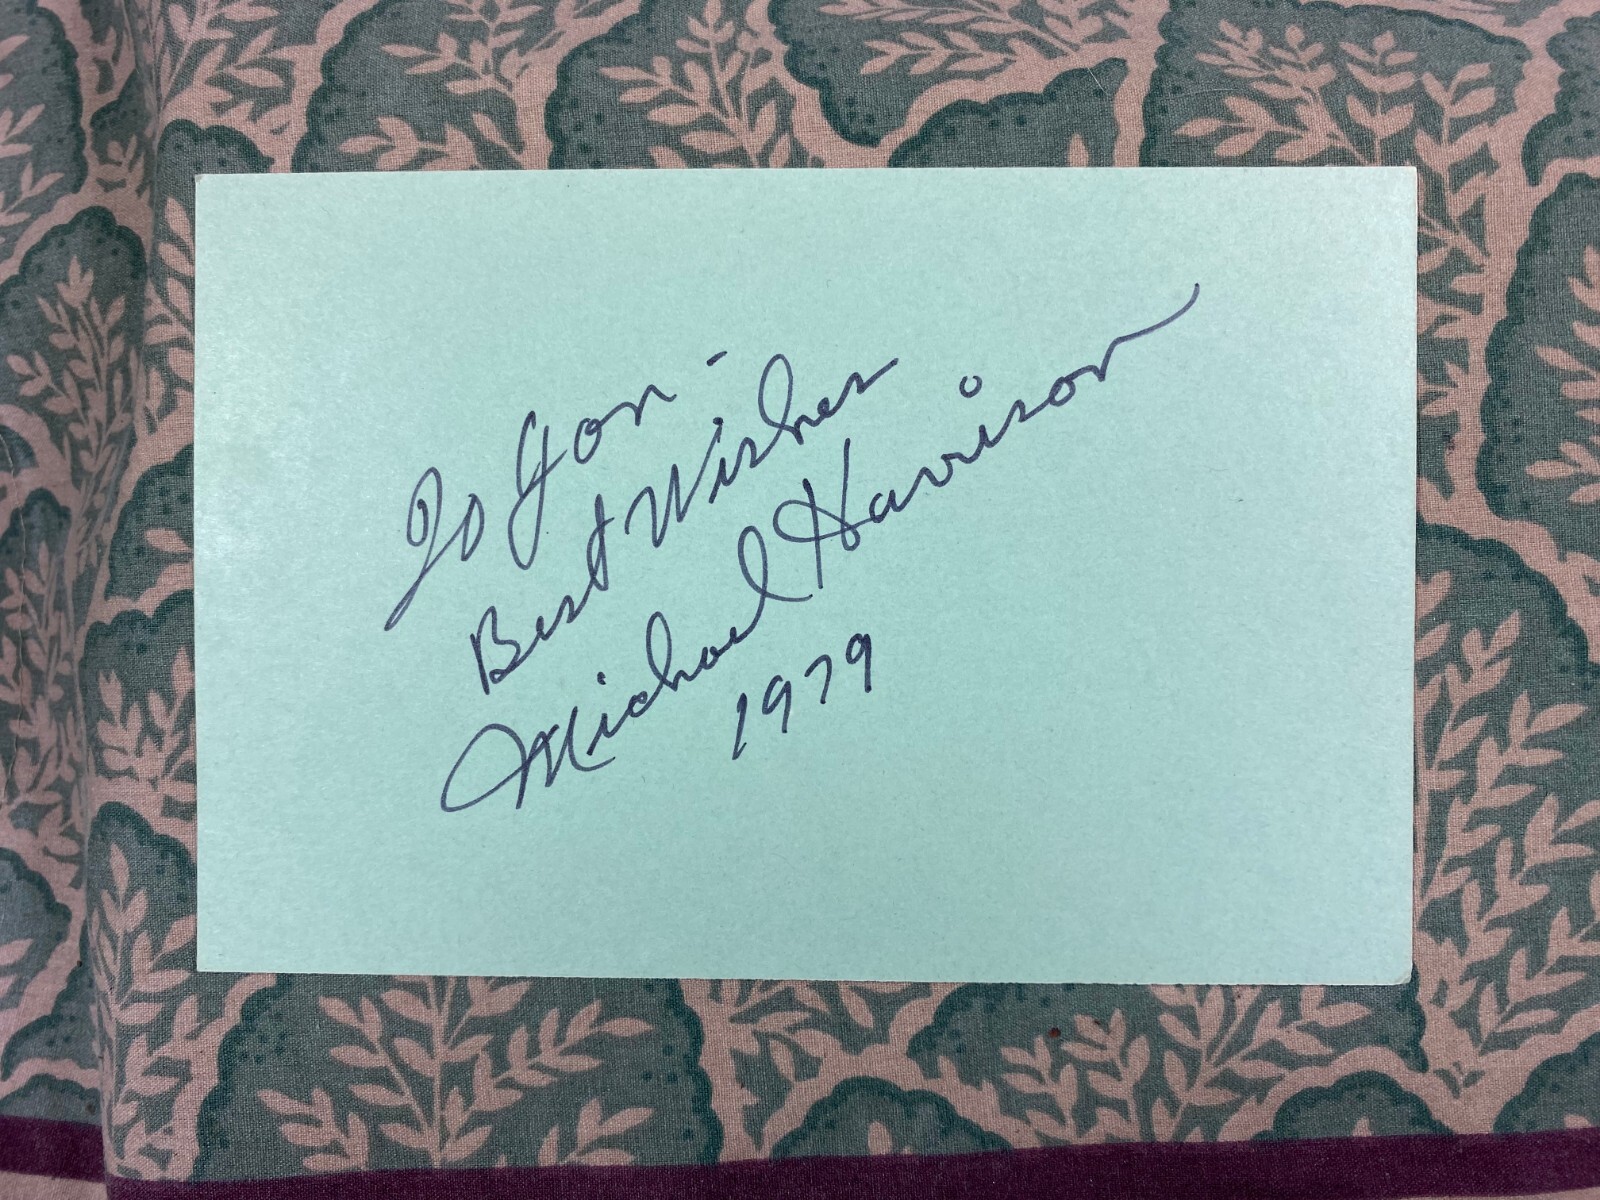 To Jon -
Best Wishes
Michael Harrison
1979